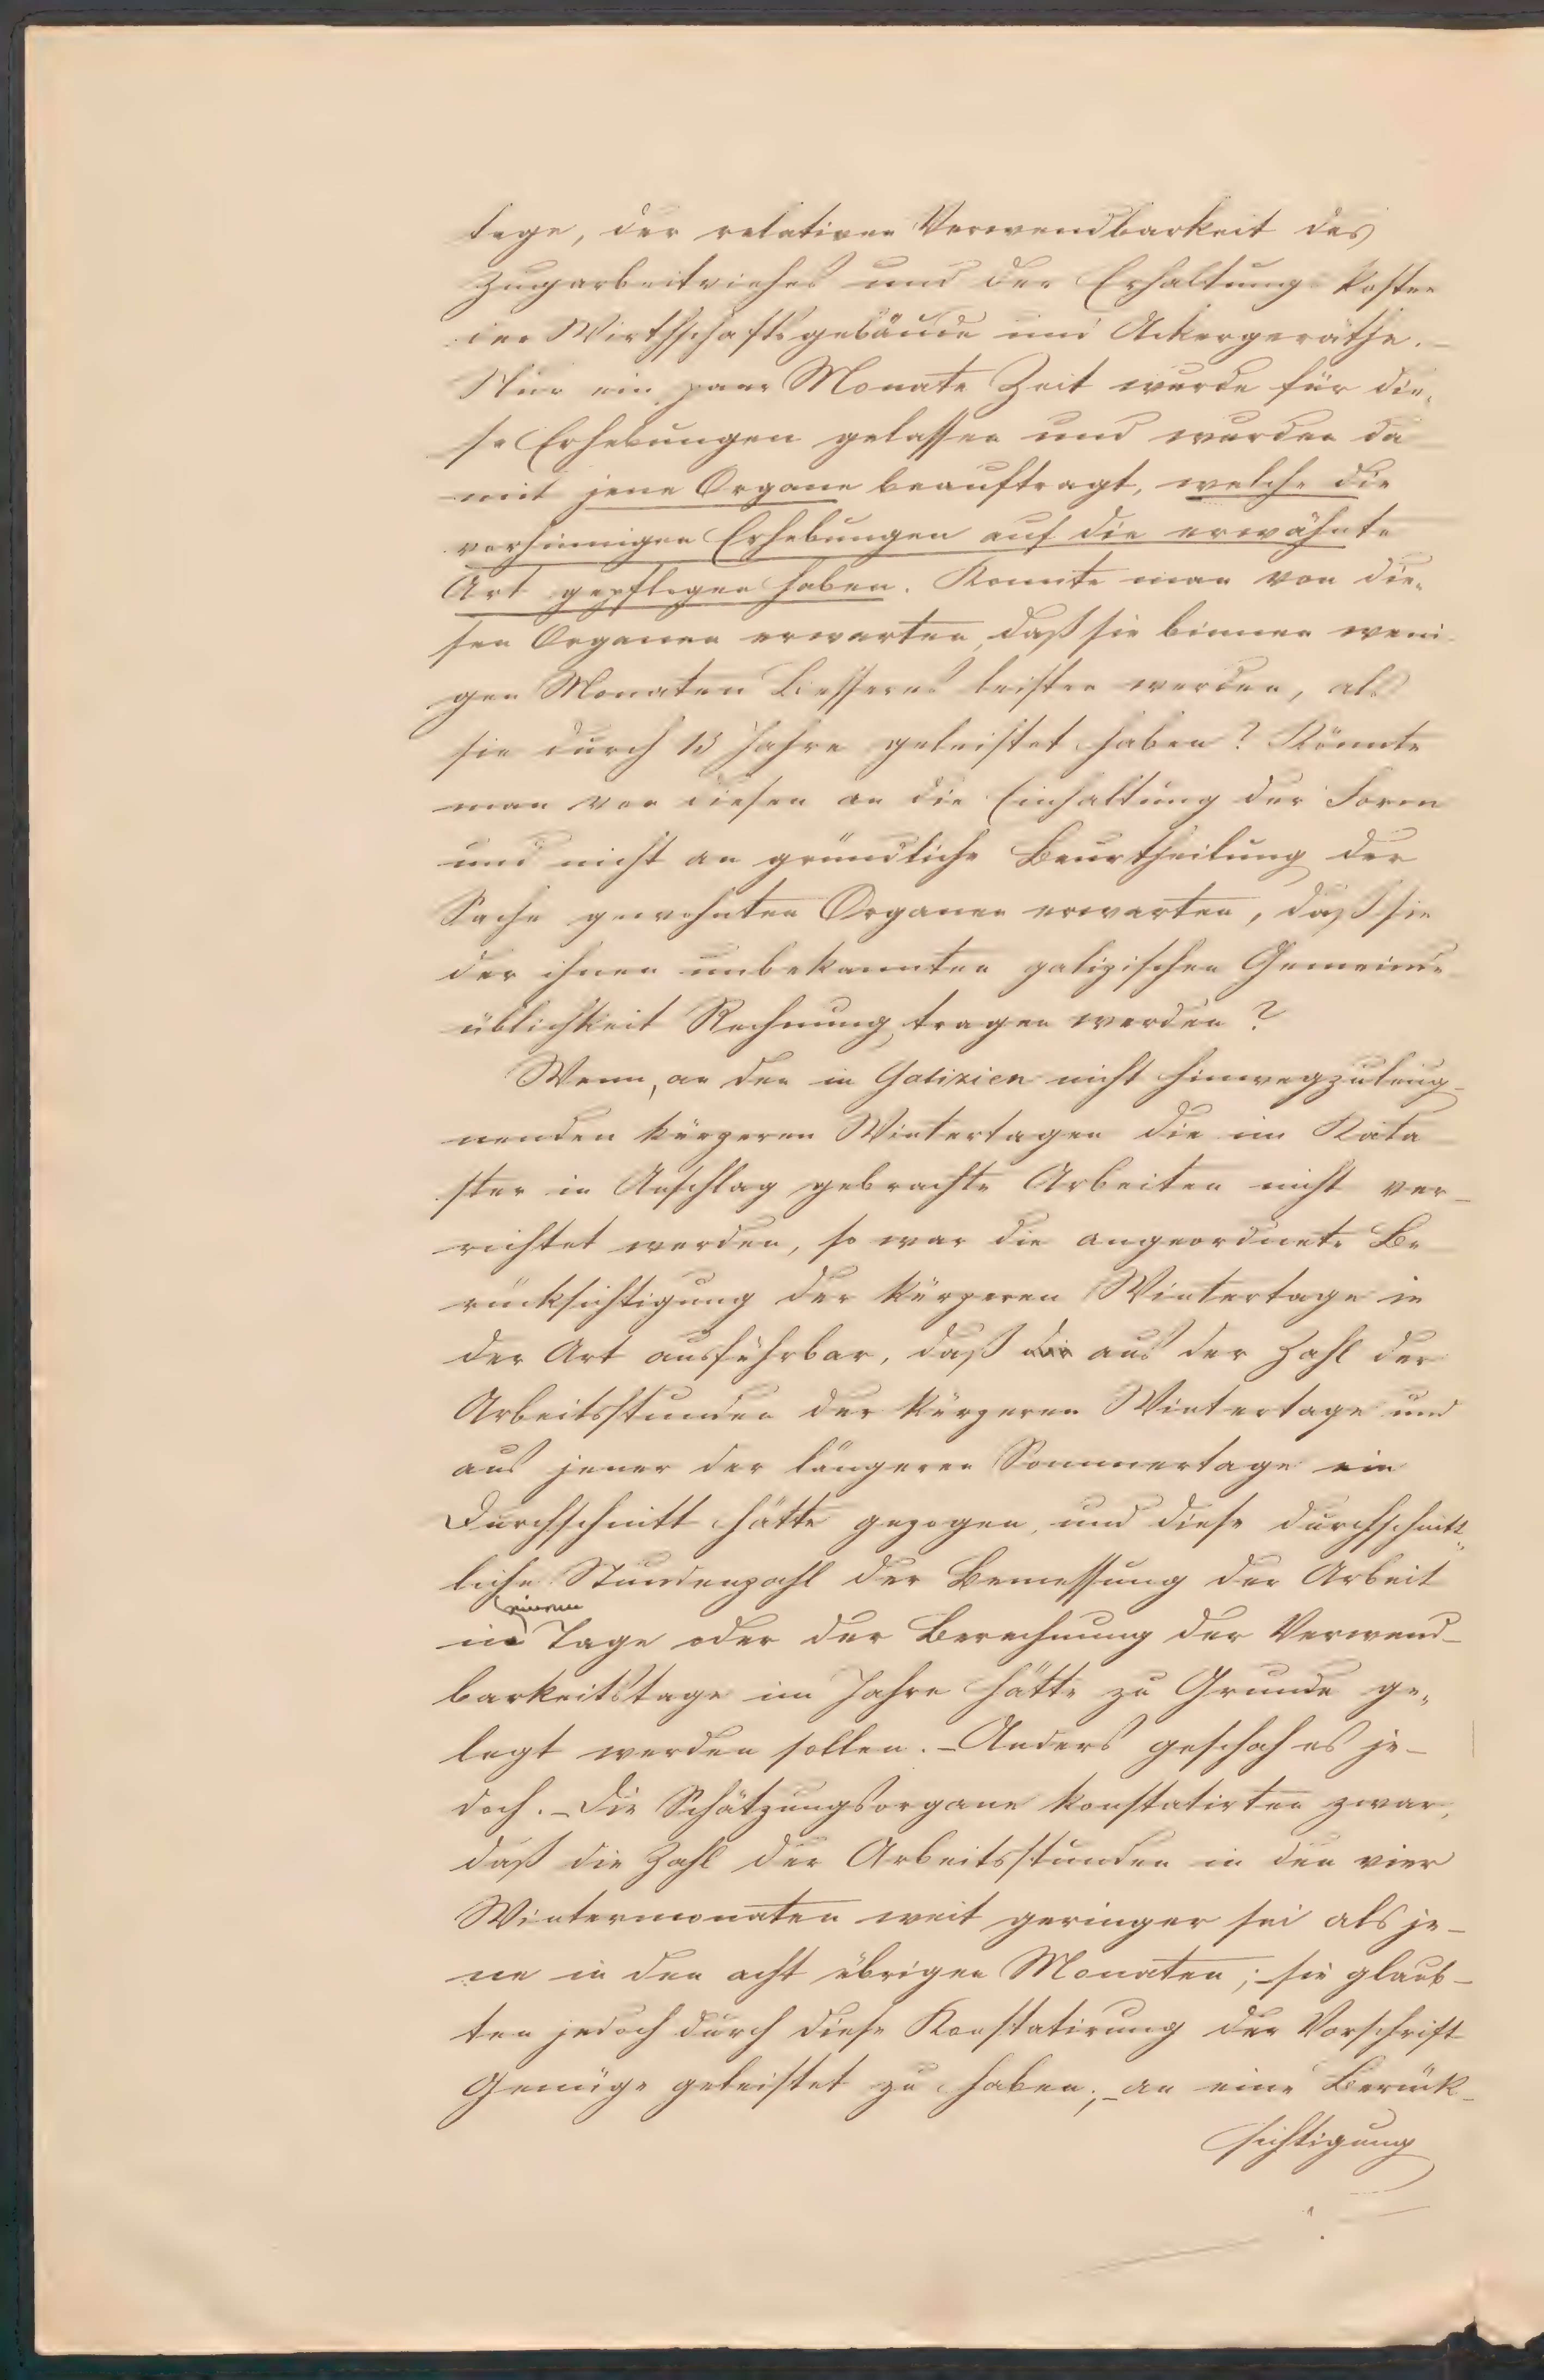 tage, der relativen Verwendbarkeit des
Zugarbeitviehes und der Erhaltungskosten
der Wirthschaftsgebäude und Ackergeräthe. –
Nur ein paar Monate Zeit wurde für die-
se Erhebungen gelassen und wurden da
mit jene Organe beauftragt, welche die
vorhinnigen Erhebungen auf die erwähnte
Art gepflogen haben. Konnte man von die-
sen Organen erwarten, daß sie binnen weni-
gen Monaten Besseres leisten werden, als
sie durch 13 Jahre geleistet haben? Könnte
man von diesen an die Einhaltung der Form
und nicht an gründliche Beurtheilung der
Sache gewohnten Organen erwarten, daß sie
der ihnen unbekannten galizischen Gemeinde
üblichkeit Rechnung tragen werden?
Wenn, an den in Galizien nicht hinwegzuleug-
nenden kürzeren Wintertagen die im Kata
ster in Anschlag gebrachte Arbeiten nicht ver-
richtet werden, so war die angeordnete Be
rücksichtigung der kürzeren Wintertage in
der Art ausführbar, daß die aus der Zahl der
Arbeitsstunden der kürzeren Wintertage und
aus jener der längeren Sommertage ein
Durchschnitt hätte gezogen, und diese durchschnitt-
liche Stundenzahl der Bemessung der Arbeit
einem
in Tage oder der Berechnung der Verwend-
barkeitstage im Jahre hätte zu Grunde ge-
legt werden sollen. – Anders geschah es je-
doch. – Die Schätzungsorgane konstatirten zwar,
daß die Zahl der Arbeitsstunden in den vier
Wintermonaten weit geringer sei als je-
ne in den acht übrigen Monaten; – sie glaub-
ten jedoch durch diese Konstatirung der Vorschrift
Genüge geleistet zu haben; – an eine Berück-
sichtigung